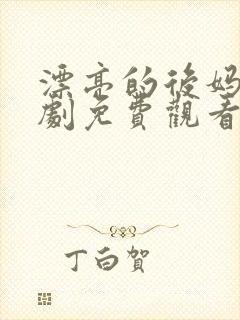 漂亮的後妈
劇免費觀看
丁白贺